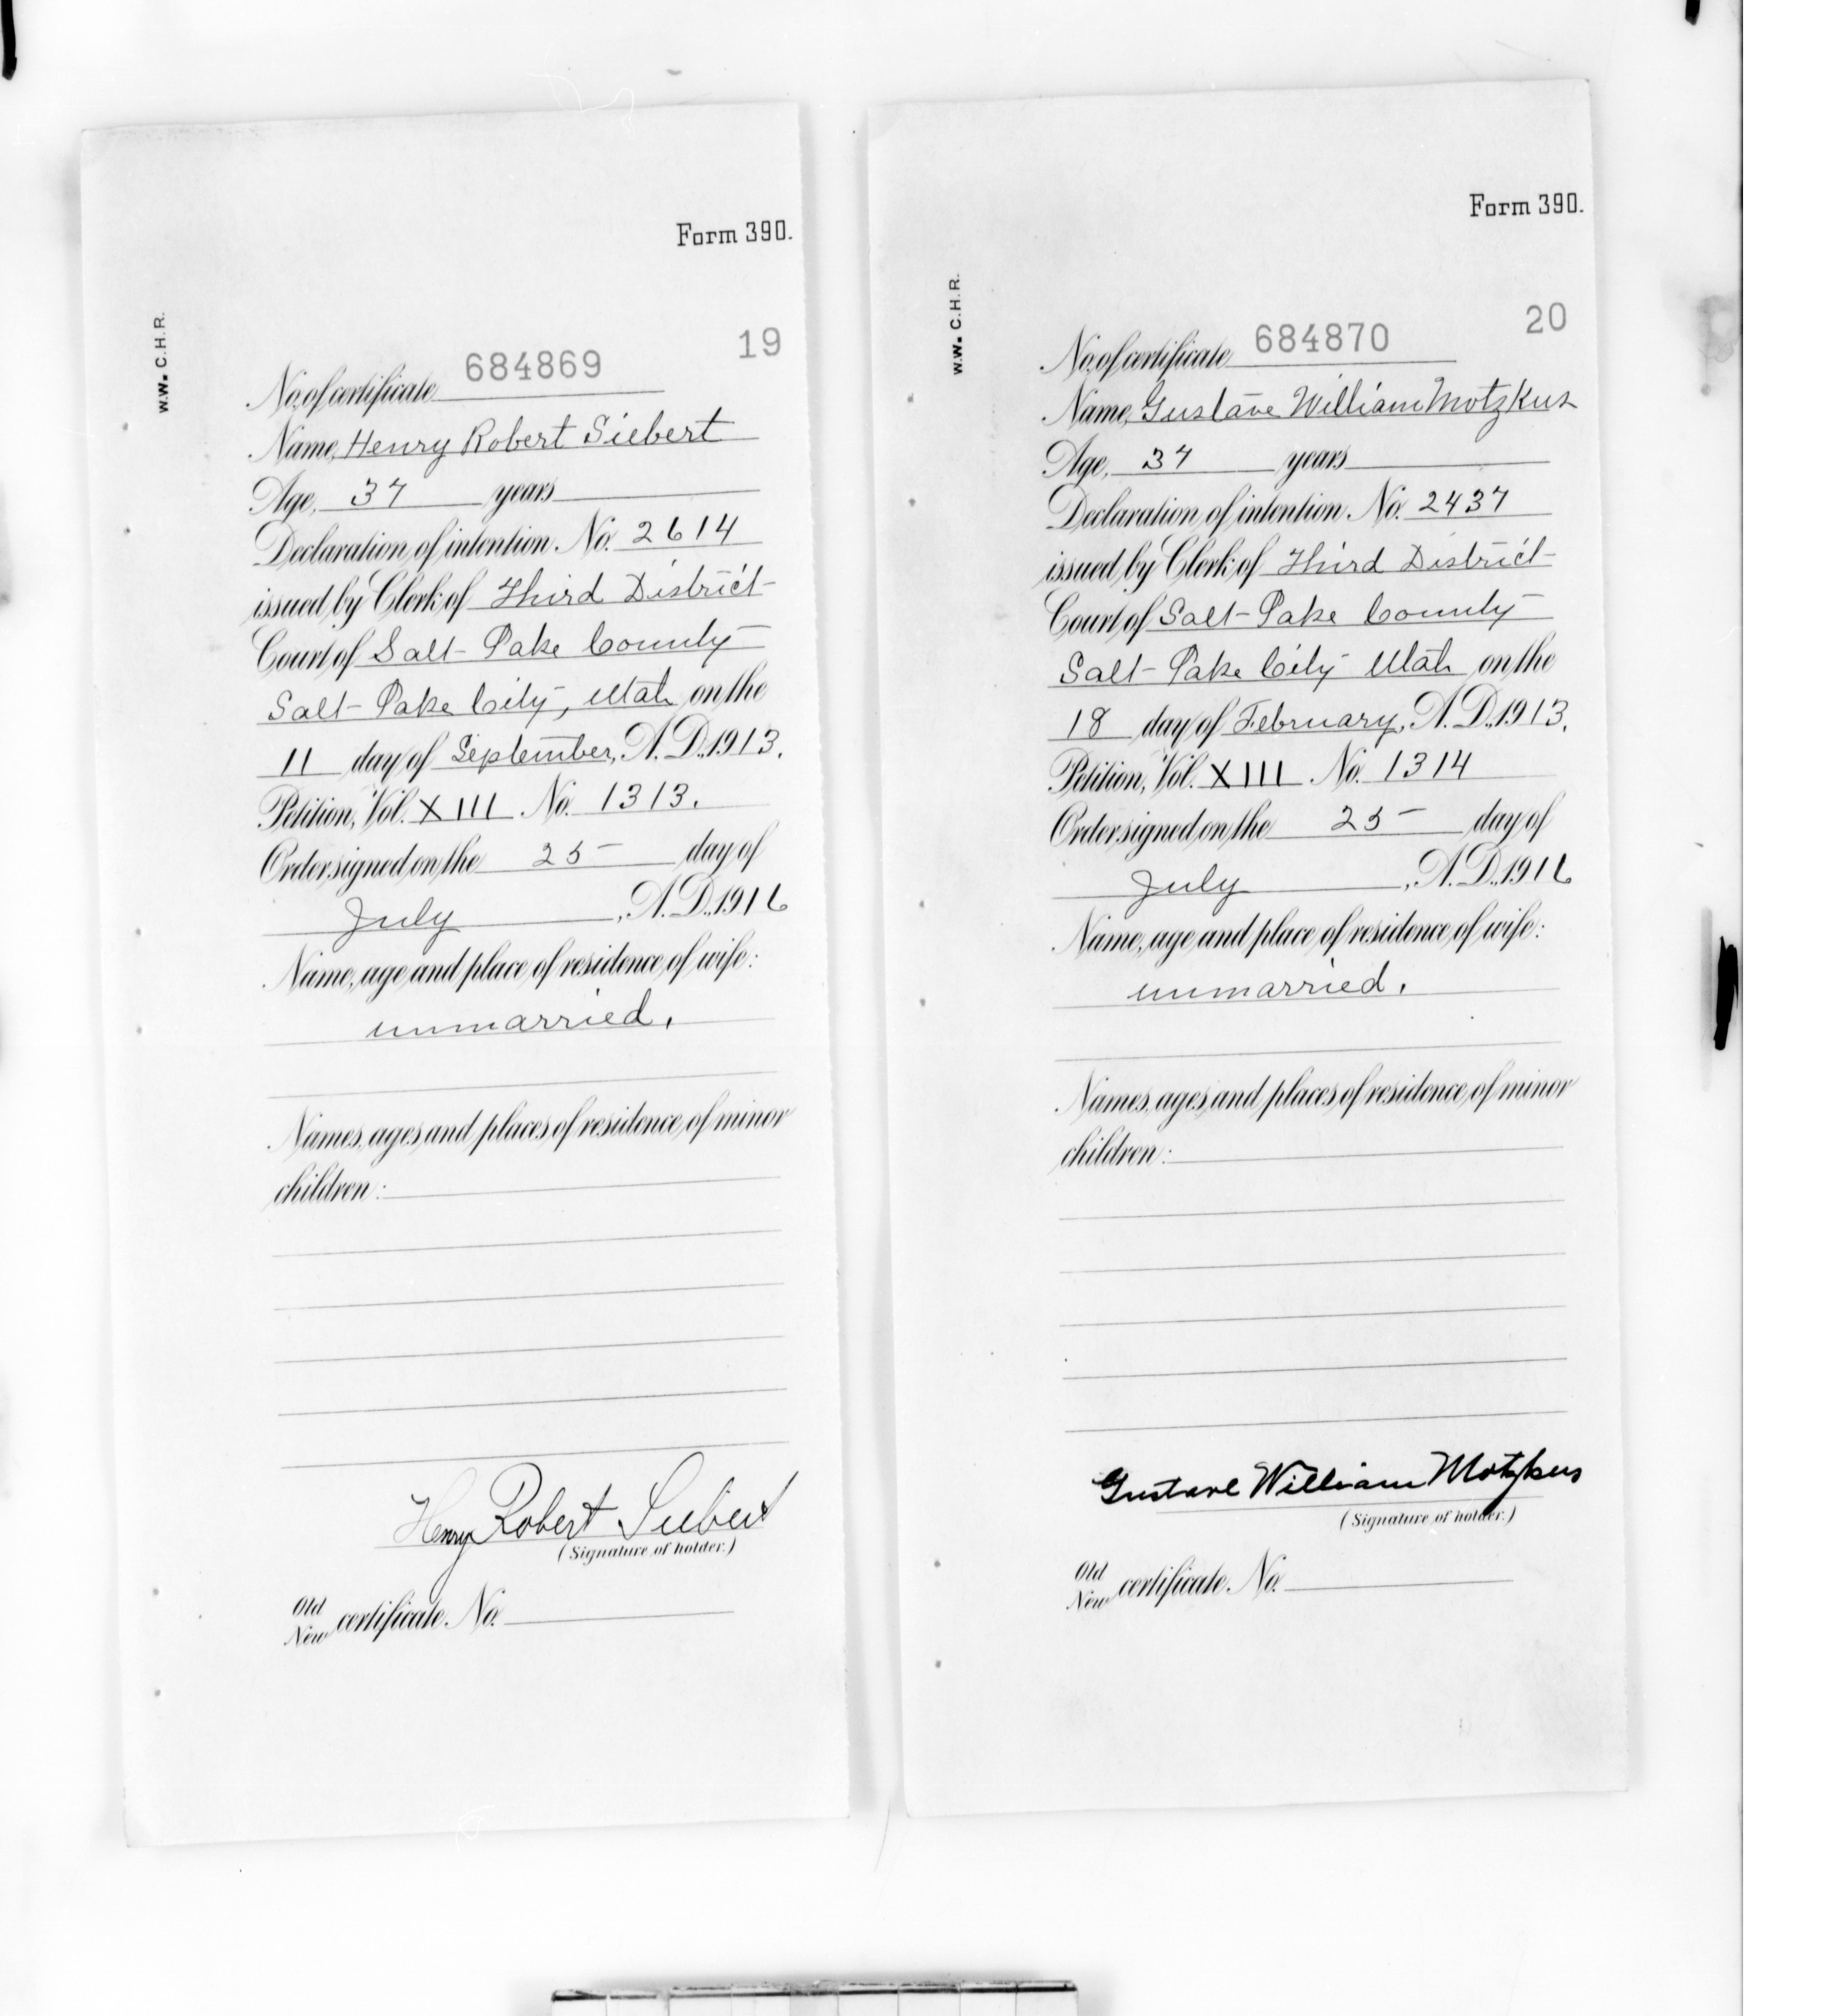 Form 390.
W.W. C.H.R.
19
No. of certificate 684869
Name, Henry Robert Siebert
Age, 37 years
Declaration of intention No. 2614
issued by Clerk of Third District
Court of Salt Lake County
Salt Lake City, Utah on the
11 day of September, A.D. 1913.
Petition, Vol. XIII No. 1313.
Order signed on the 25 day of
July, A.D. 1916
Name, age and place of residence of wife:
unmarried.
Names, ages and places of residence of minor
children:
Henry Robert Siebert
(Signature of holder.)
Old
New certificate No.
Form 390.
W.W. C.H.R.
20
No. of certificate 684870
Name, Gustave William Motzkus
Age, 37 years
Declaration of intention No. 2437
issued by Clerk of Third District
Court of Salt Lake County
Salt Lake City Utah on the
18 day of February, A.D. 1913.
Petition, Vol. XIII No. 1314
Order signed on the 25 day of
July, A.D. 1916
Name, age and place of residence of wife:
unmarried.
Names, ages and places of residence of minor
children:
Gustave William Motzkus
(Signature of holder.)
Old
New certificate No.